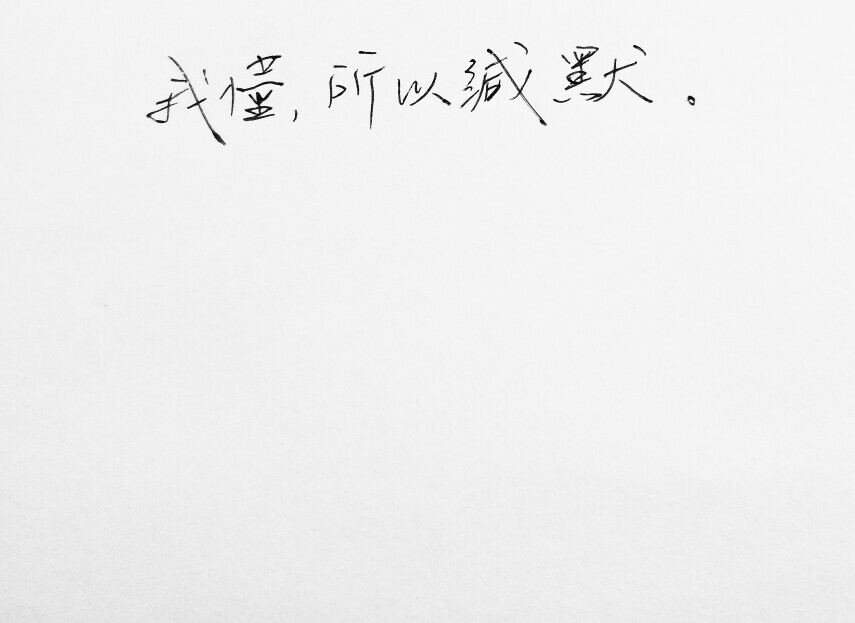 我懂，所以缄默。